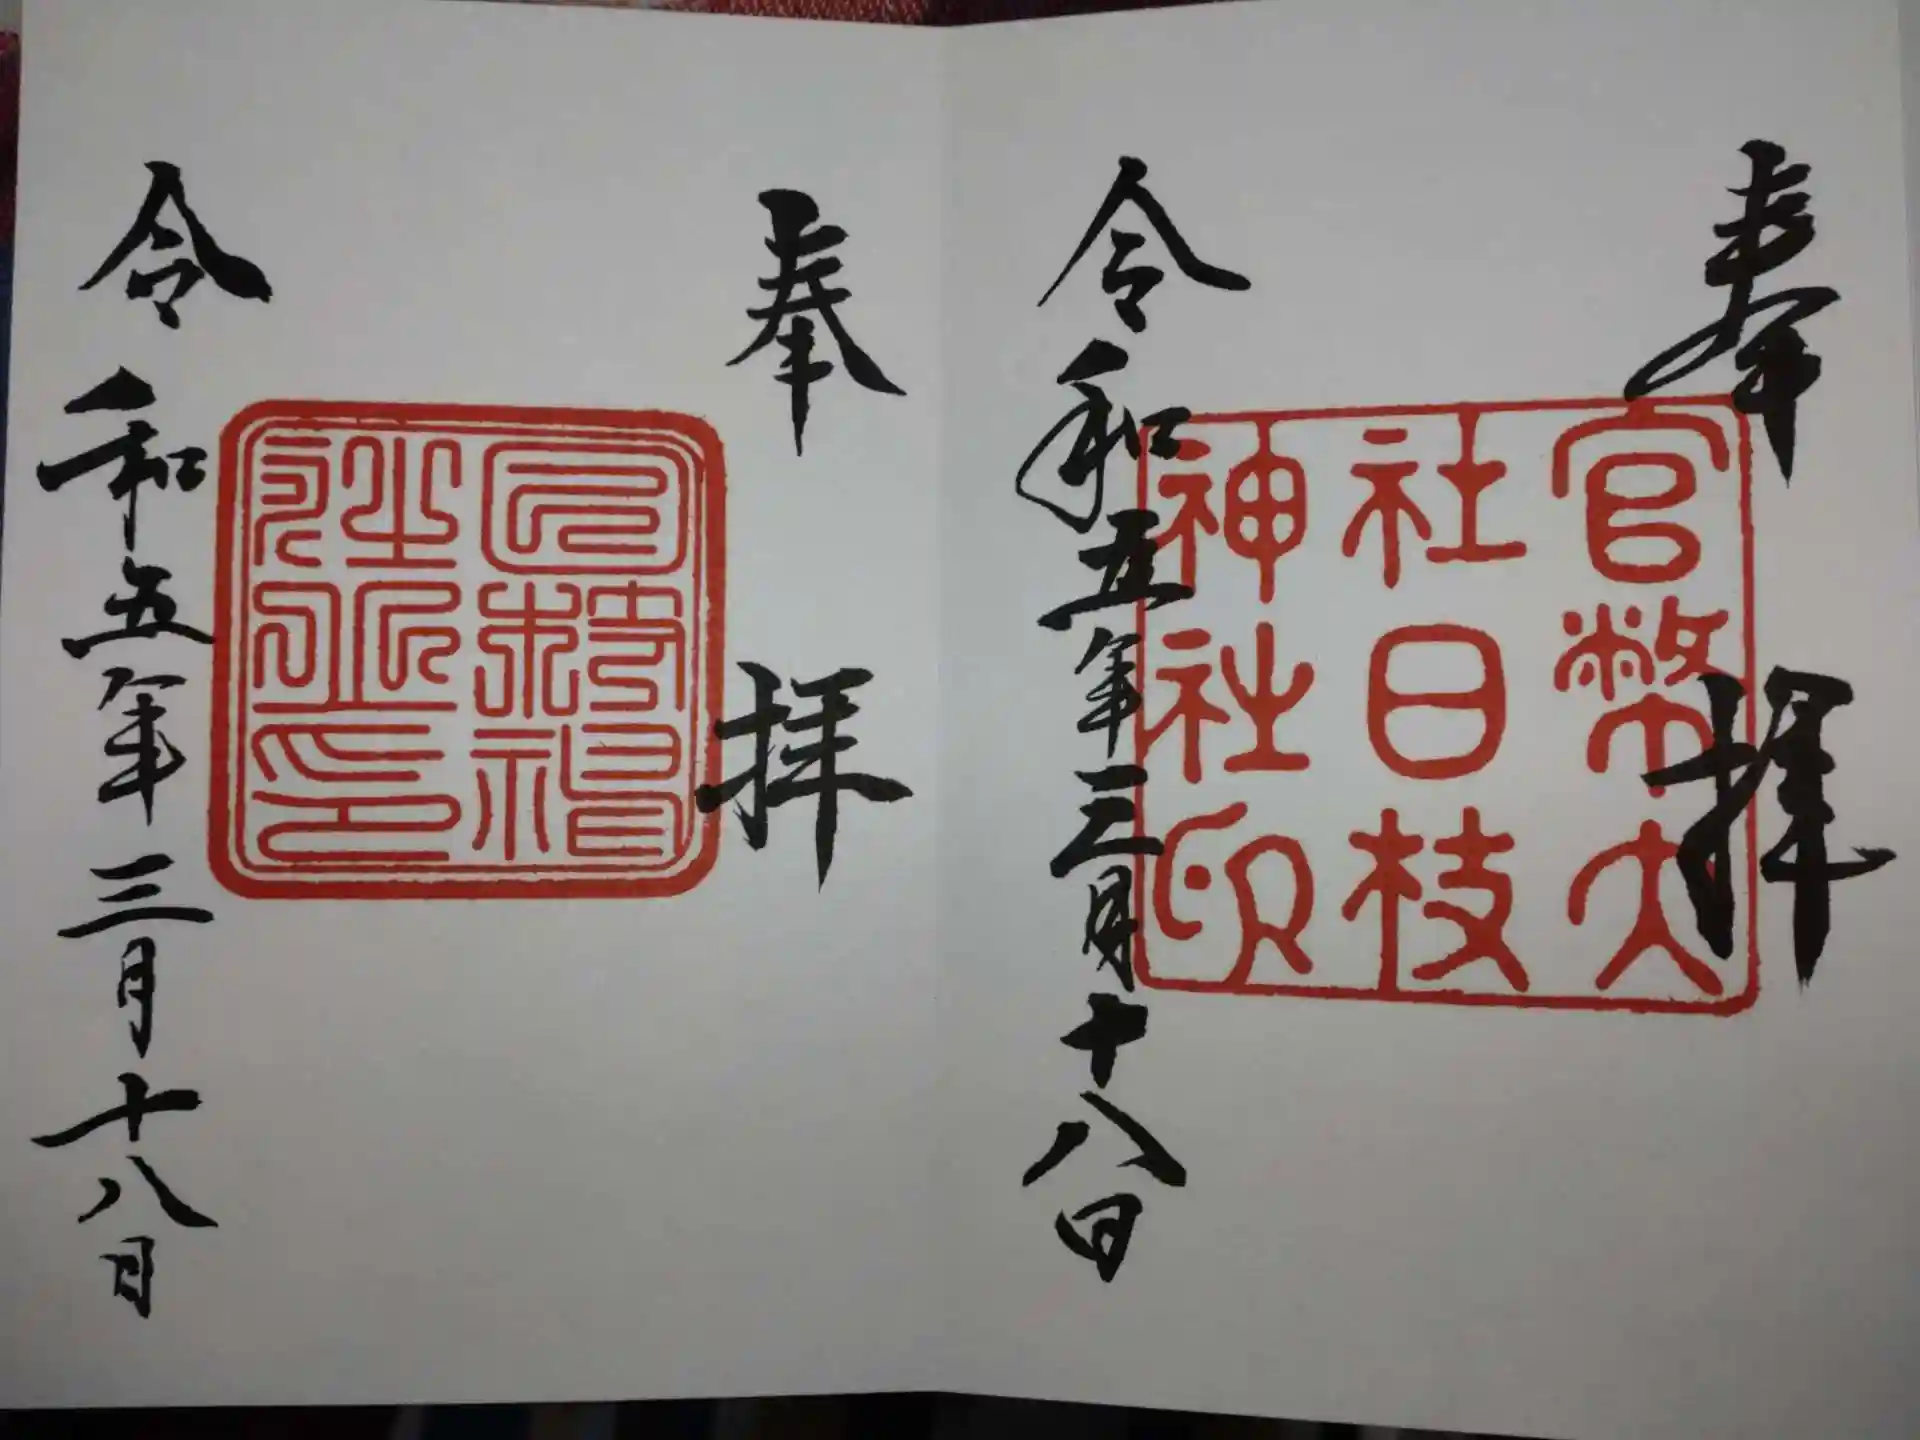 奉拝
官幣大
社日枝
神社印
令和五年三月十八日
奉拝
令和五年三月十八日